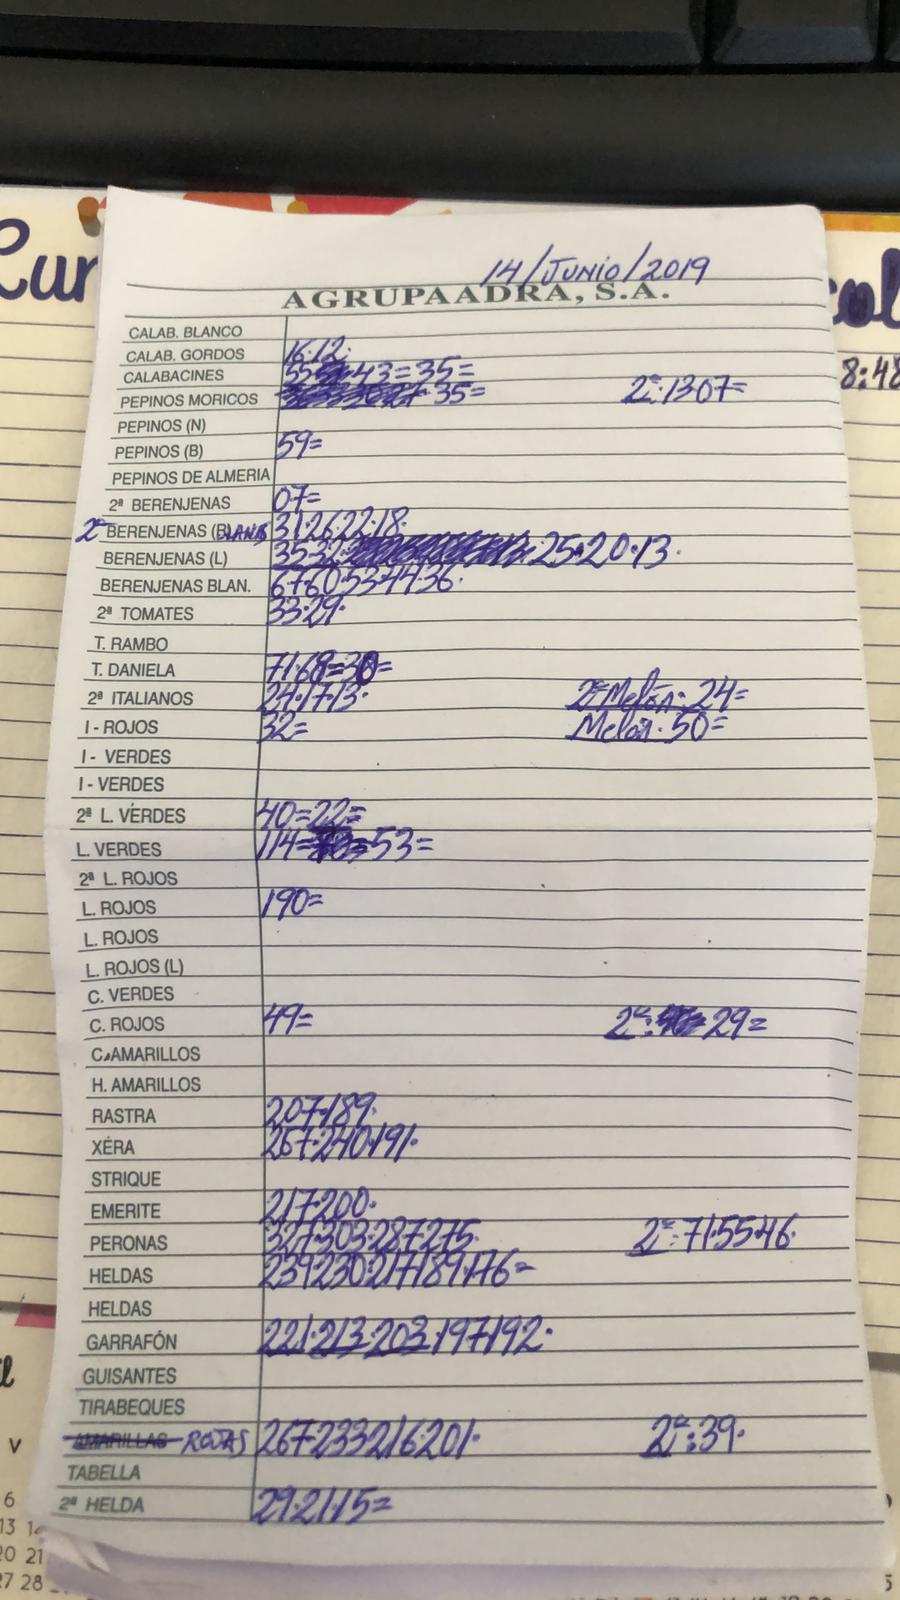 14/JUNIO/2019
AGRUPAADRA, S.A.
CALAB. BLANCO
CALAB. GORDOS 16·12·
CALABACINES 43=35=
PEPINOS MORICOS 35= 2ª:1307=
PEPINOS (N)
PEPINOS (B) 59=
PEPINOS DE ALMERIA
2ª BERENJENAS 07=
2ª BERENJENAS (B) BLANS 31·26·22·18·
BERENJENAS (L) 35·32· 25·20·13·
BERENJENAS BLAN. 67·60·53·44·36·
2ª TOMATES 33·29·
T. RAMBO
T. DANIELA 71·68=30=
2ª ITALIANOS 24·17·13· 2ª Melón: 24=
I - ROJOS 32= Melón· 50=
I - VERDES
I - VERDES
2ª L. VERDES 40=22=
L. VERDES 114= 53=
2ª L. ROJOS
L. ROJOS 190=
L. ROJOS
L. ROJOS (L)
C. VERDES
C. ROJOS 49= 2ª: 29=
C. AMARILLOS
H. AMARILLOS
RASTRA 207·189·
XÉRA 267·240·191·
STRIQUE
EMERITE 217·200·
PERONAS 327·303·287·275· 2ª:71·55·46·
HELDAS 239·230·217·189·176=
HELDAS
GARRAFÓN 221·213·203·197·192·
GUISANTES
TIRABEQUES
AMARILLAS ROJAS 267·233·216·201· 2ª:39·
TABELLA
2ª HELDA 29·21·15=
8:48